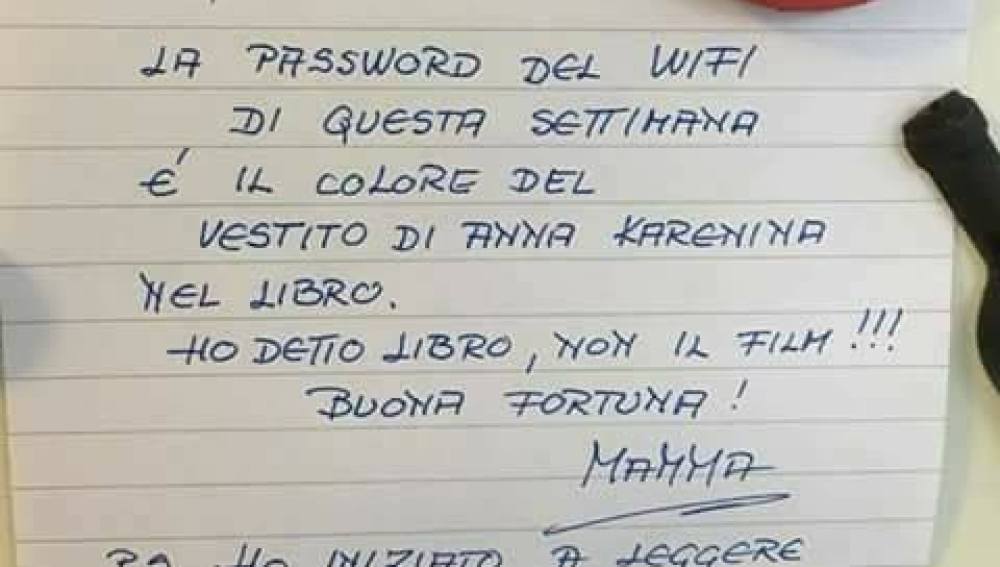 LA PASSWORD DEL WIFI
DI QUESTA SETTIMANA
É IL COLORE DEL
VESTITO DI ANNA KARENINA
NEL LIBRO.
HO DETTO LIBRO, NON IL FILM !!!
BUONA FORTUNA !
MAMMA
HO INIZIATO A LEGGERE